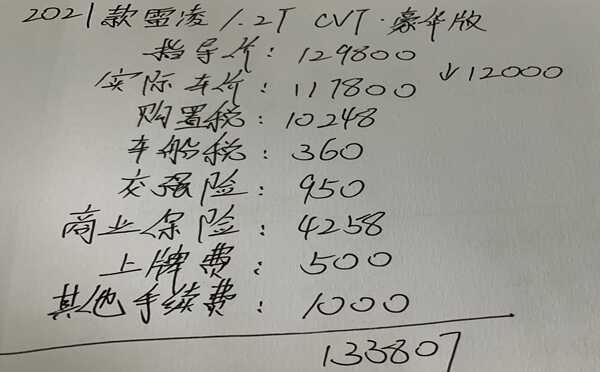 2021款雷凌 1.2T CVT·豪华版
指导价：129800
实际车价：117800 ↓12000
购置税：10248
车船税：360
交强险：950
商业保险：4258
上牌费：500
其他手续费：1000
133807